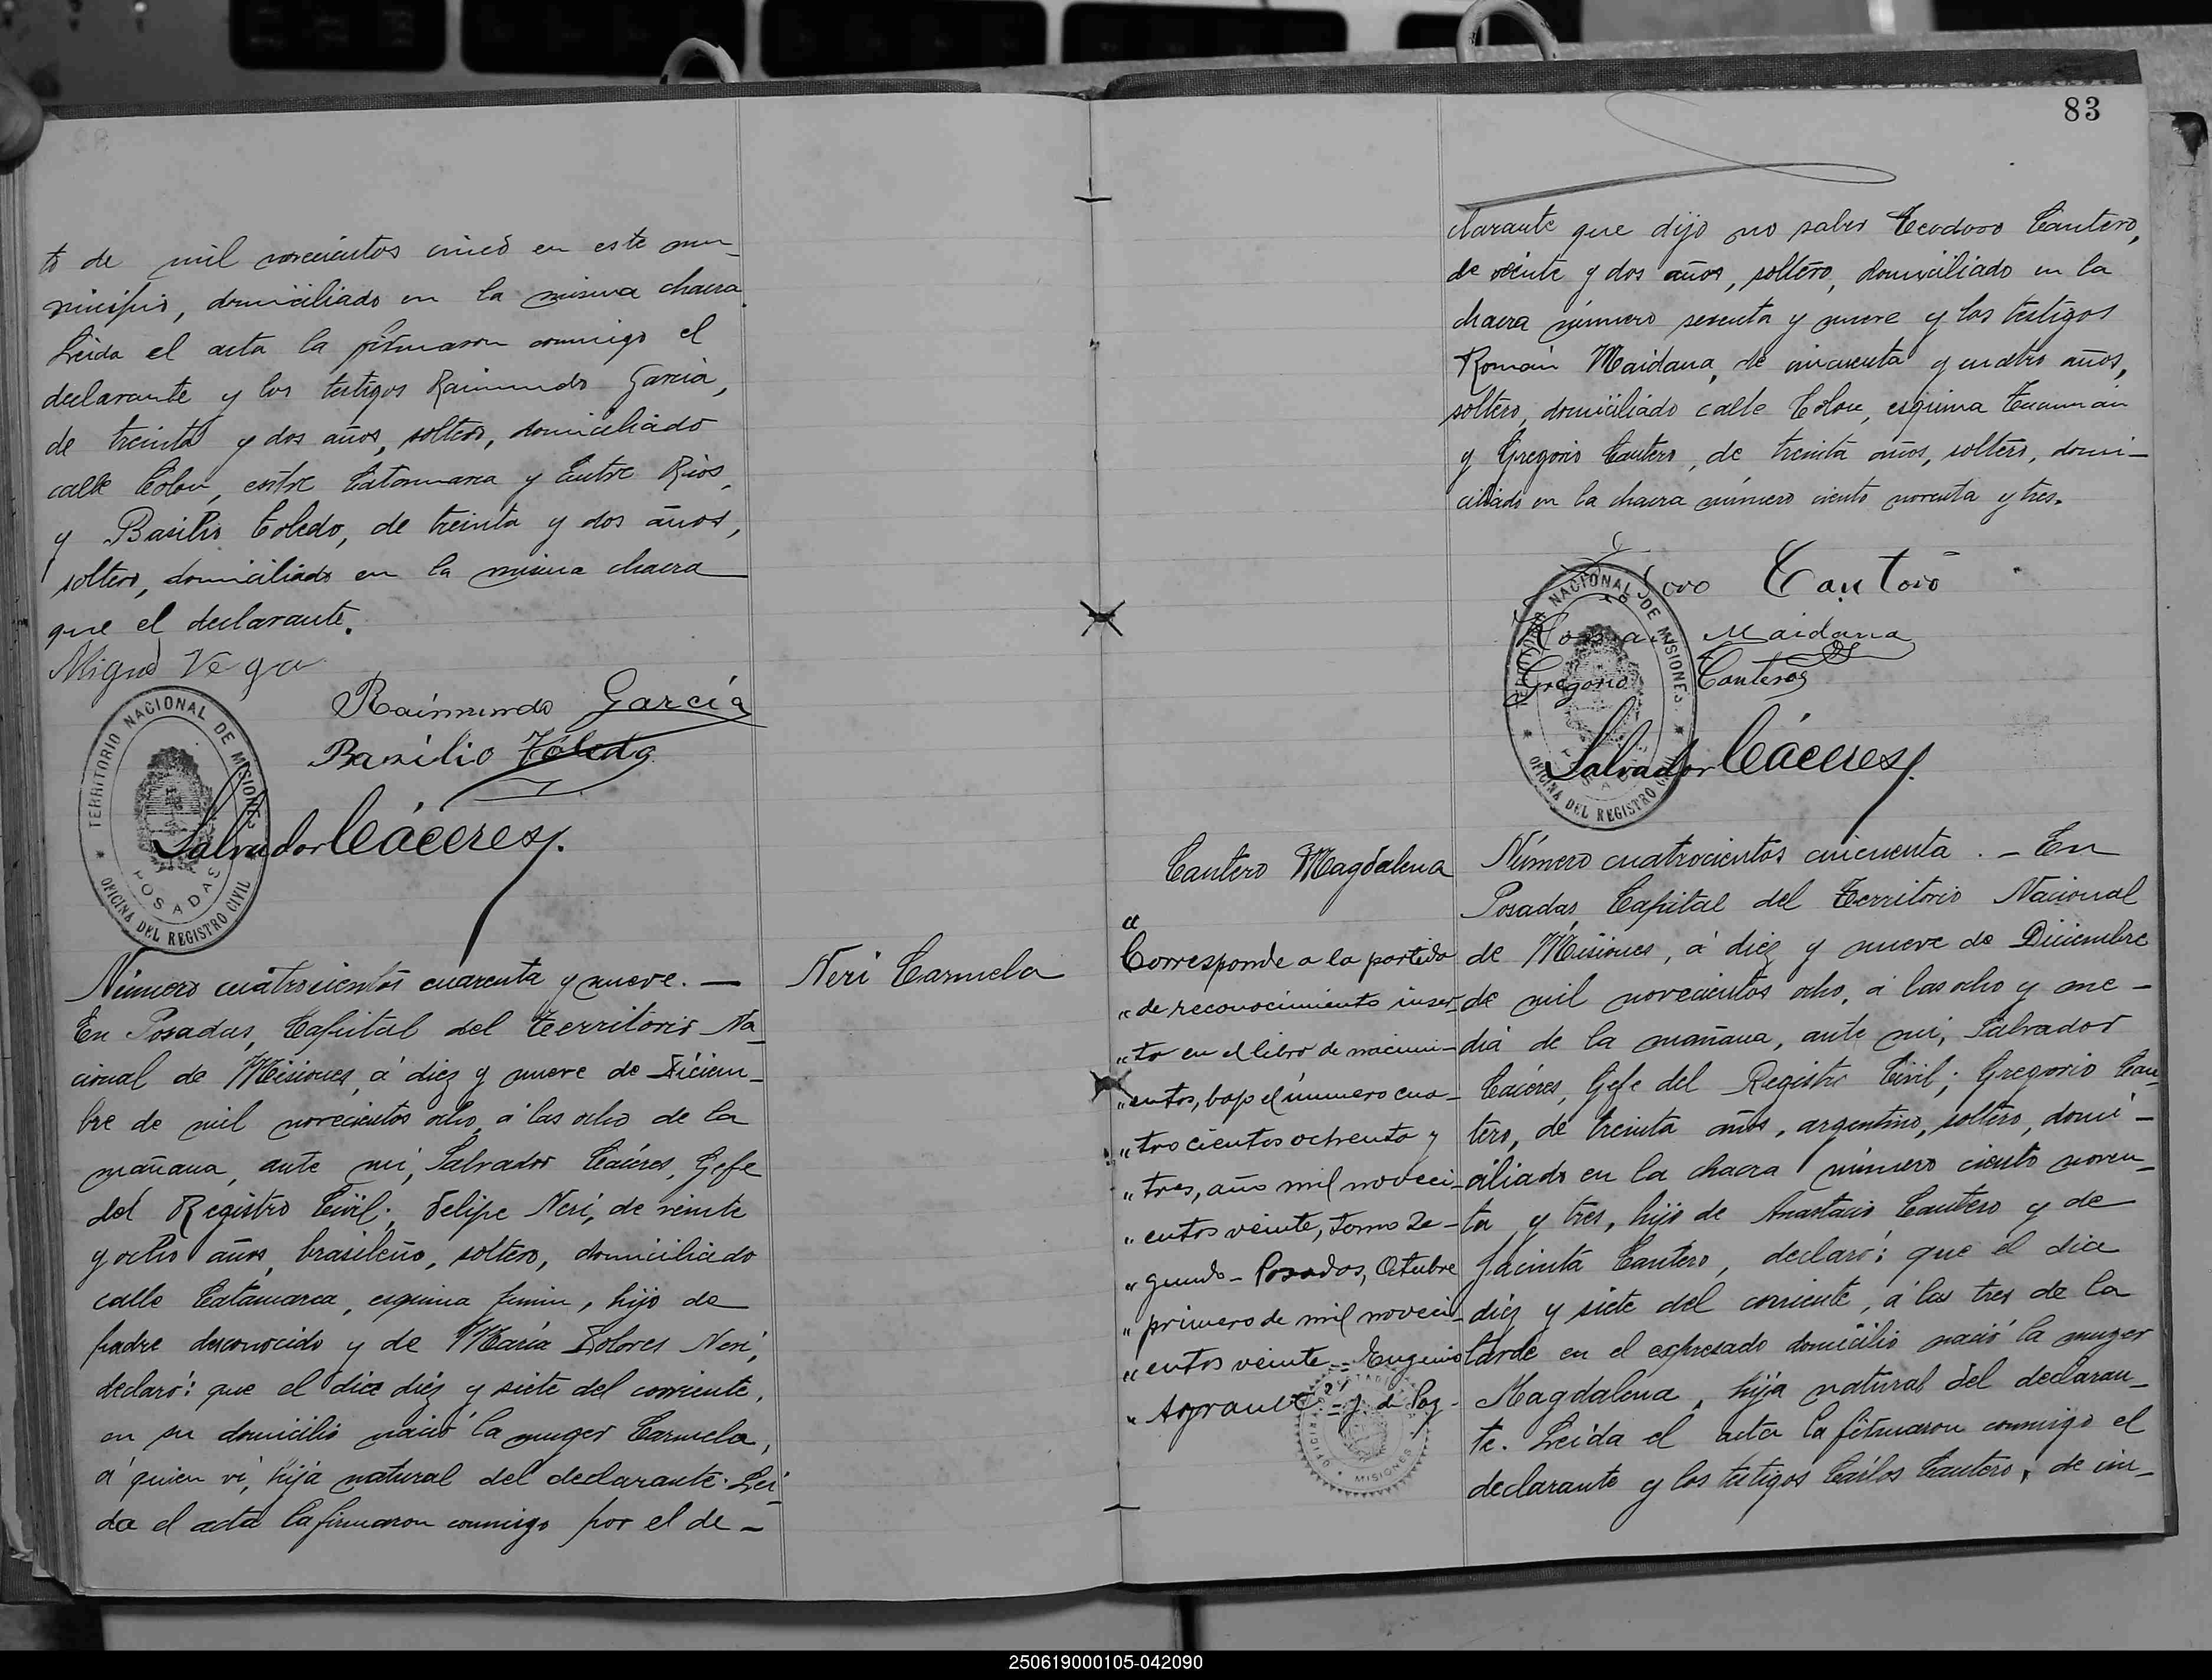 to de mil novecientos cinco en este mu-
nicipio, domiciliado en la misma chacra.
Leida el acta la firmaron conmigo el
declarante y los testigos Raimundo Garcia,
de treinta y dos años, soltero, domiciliado
calle Colon, entre Catamarca y Entre Rios,
y Basilio Toledo, de treinta y dos años,
soltero, domiciliado en la misma chacra
que el declarante.
Miguel Vega
Raimundo García
Basilio Toledo
TERRITORIO NACIONAL DE MISIONES
POSADAS
OFICINA DEL REGISTRO CIVIL
Salvador Cáceres
Neri Carmela
Número cuatrocientos cuarenta y nueve. —
En Posadas, Capital del Territorio Na-
cional de Misiones, á diez y nueve de Diciem-
bre de mil novecientos ocho, á las ocho de la
mañana, ante mi, Salvador Cáceres, Gefe
del Registro Civil; Felipe Neri, de veinte
y ocho años, brasileño, soltero, domiciliado
calle Catamarca, esquina Junin, hijo de
padre desconocido y de María Dolores Neri,
declaró: que el dia diez y siete del corriente,
en su domicilio nació la muger Carmela,
á quien vi, hija natural del declarante. Lei-
da el acta la firmaron conmigo por el de-
83
clarante que dijo no saber Teodoro Cantero,
de veinte y dos años, soltero, domiciliado en la
chacra número sesenta y nueve y los testigos
Román Maidana, de cincuenta y cuatro años,
soltero, domiciliado calle Colon, esquina Tucumán
y Gregorio Cantero, de treinta años, soltero, domi-
ciliado en la chacra número ciento noventa y tres.
Cantero
Maidana
Gregorio Canteros
TERRITORIO NACIONAL DE MISIONES
OFICINA DEL REGISTRO
Salvador Cáceres
Cantero Magdalena
a
Corresponde a la partida
" de reconocimiento inser-
" to en el libro de nacimi-
" entos, bajo el número cua-
" trocientos ochenta y
" tres, año mil noveci-
" entos veinte, tomo Se-
" gundo – Posadas, Octubre
" primero de mil noveci-
" entos veinte – Eugenio
" J. de Paz -
MISIONES
Número cuatrocientos cincuenta. – En
Posadas, Capital del Territorio Nacional
de Misiones, á diez y nueve de Diciembre
de mil novecientos ocho, á las ocho y me-
dia de la mañana, ante mi, Salvador
Cáceres, Gefe del Registro Civil; Gregorio Can-
tero, de treinta años, argentino, soltero, domi-
ciliado en la chacra número ciento noven-
ta y tres, hijo de Anastacio Cantero y de
Jacinta Cantero, declaró: que el dia
diez y siete del corriente, á las tres de la
tarde en el expresado domicilio nació la muger
Magdalena, hija natural del declaran-
te. Leida el acta la firmaron conmigo el
declarante y los testigos Cárlos Cantero, de cin-
250619000105-042090